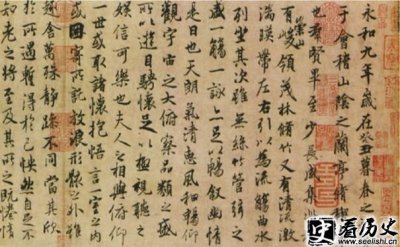 永和九年歲在癸丑暮春之初
于會稽山陰之蘭亭脩稧
也群賢畢至少長咸集
有崇山峻領茂林脩竹又有清流激
湍暎帶左右引以為流觴曲水
列坐其次雖無絲竹管弦之
盛一觴一詠亦足以暢敘幽情
是日也天朗氣清惠風和暢仰
觀宇宙之大俯察品類之盛
所以遊目騁懷足以極視聽之
娛信可樂也夫人之相與俯仰
一世或取諸懷抱悟言一室之內
或因寄所託放浪形骸之外雖
趣舍萬殊靜躁不同當其欣
於所遇蹔得於己快然自足不
知老之將至及其所之既惓情
看历史
www.seelishi.cn